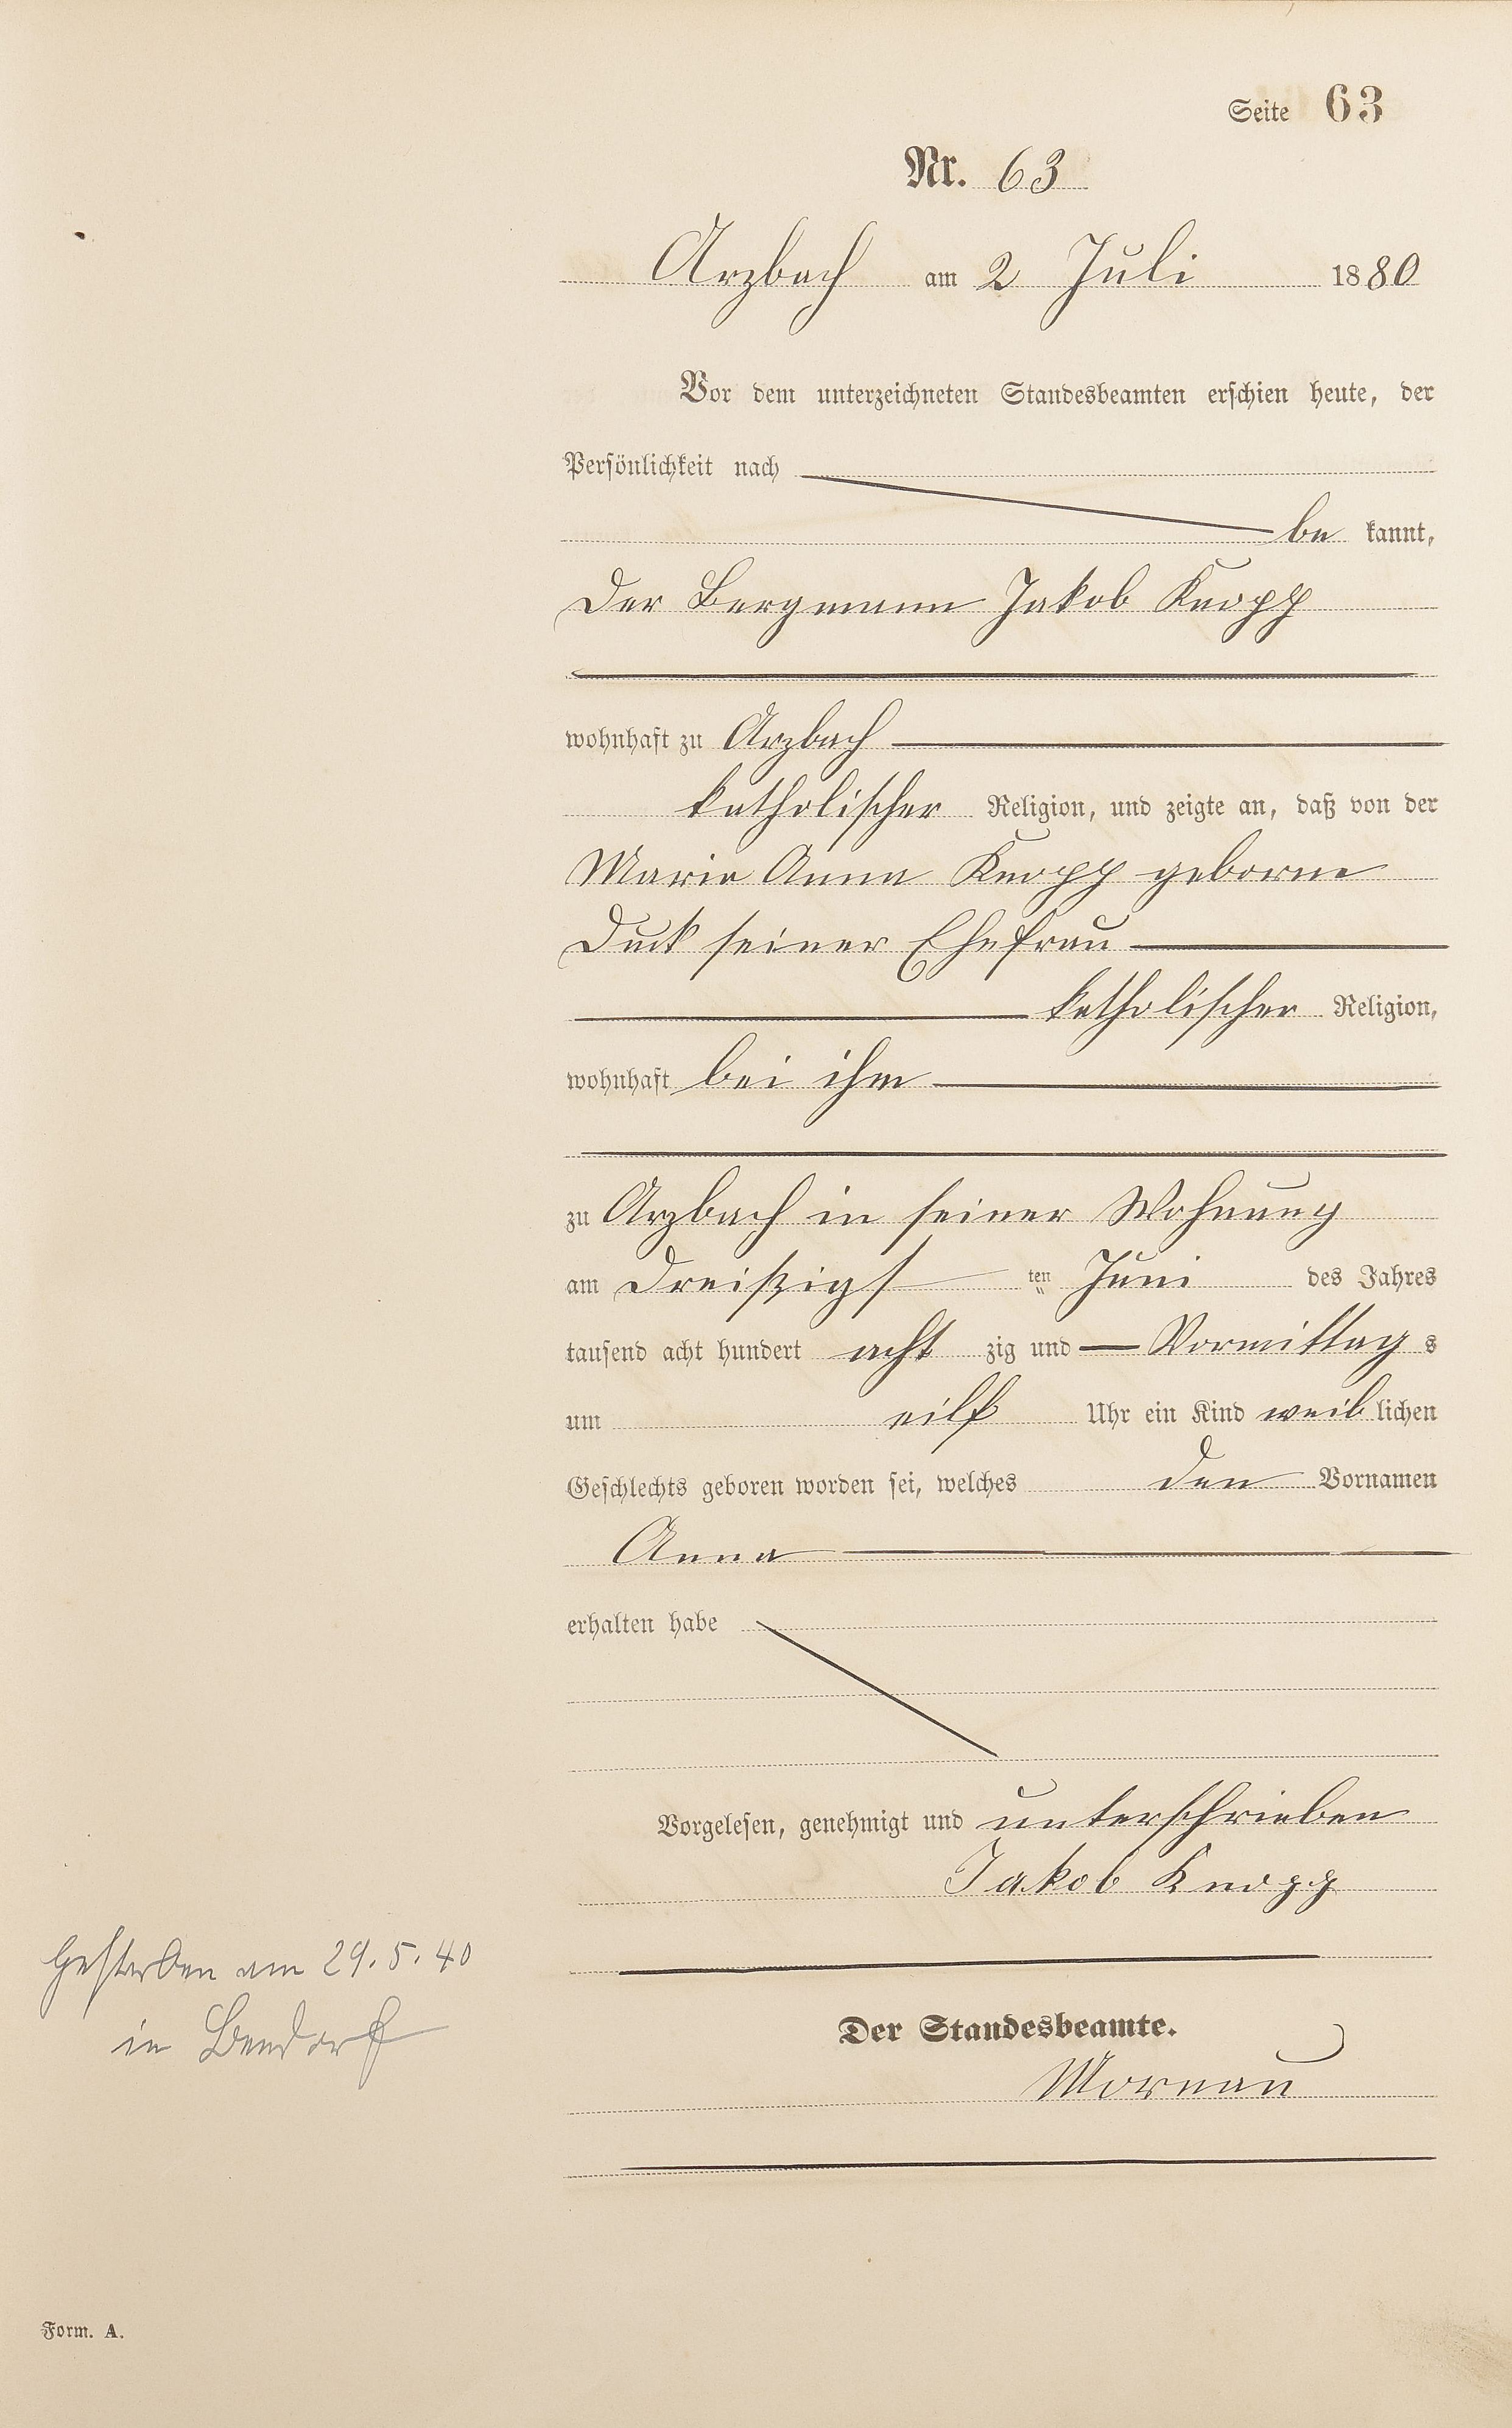 Seite 63
Nr. 63
Arzbach am 2 Juli 1880
Vor dem unterzeichneten Standesbeamten erschien heute, der
Persönlichkeit nach
be kannt,
Der Bergmann Jakob Knopp
wohnhaft zu Arzbach
katholischer Religion, und zeigte an, daß von der
Maria Anna Knopp geborne
Duck seiner Ehefrau
katholischer Religion,
wohnhaft bei ihm
zu Arzbach in seiner Wohnung
am Dreißigst ten Juni des Jahres
tausend acht hundert acht zig und Vormittag s
um eilf Uhr ein Kind weib lichen
Geschlechts geboren worden sei, welches den Vornamen
Anna
erhalten habe
Vorgelesen, genehmigt und unterschrieben
Jakob Knopp
Gestorben am 29.5.40
in Bendorf
Der Standesbeamte.
Mornau
Form. A.